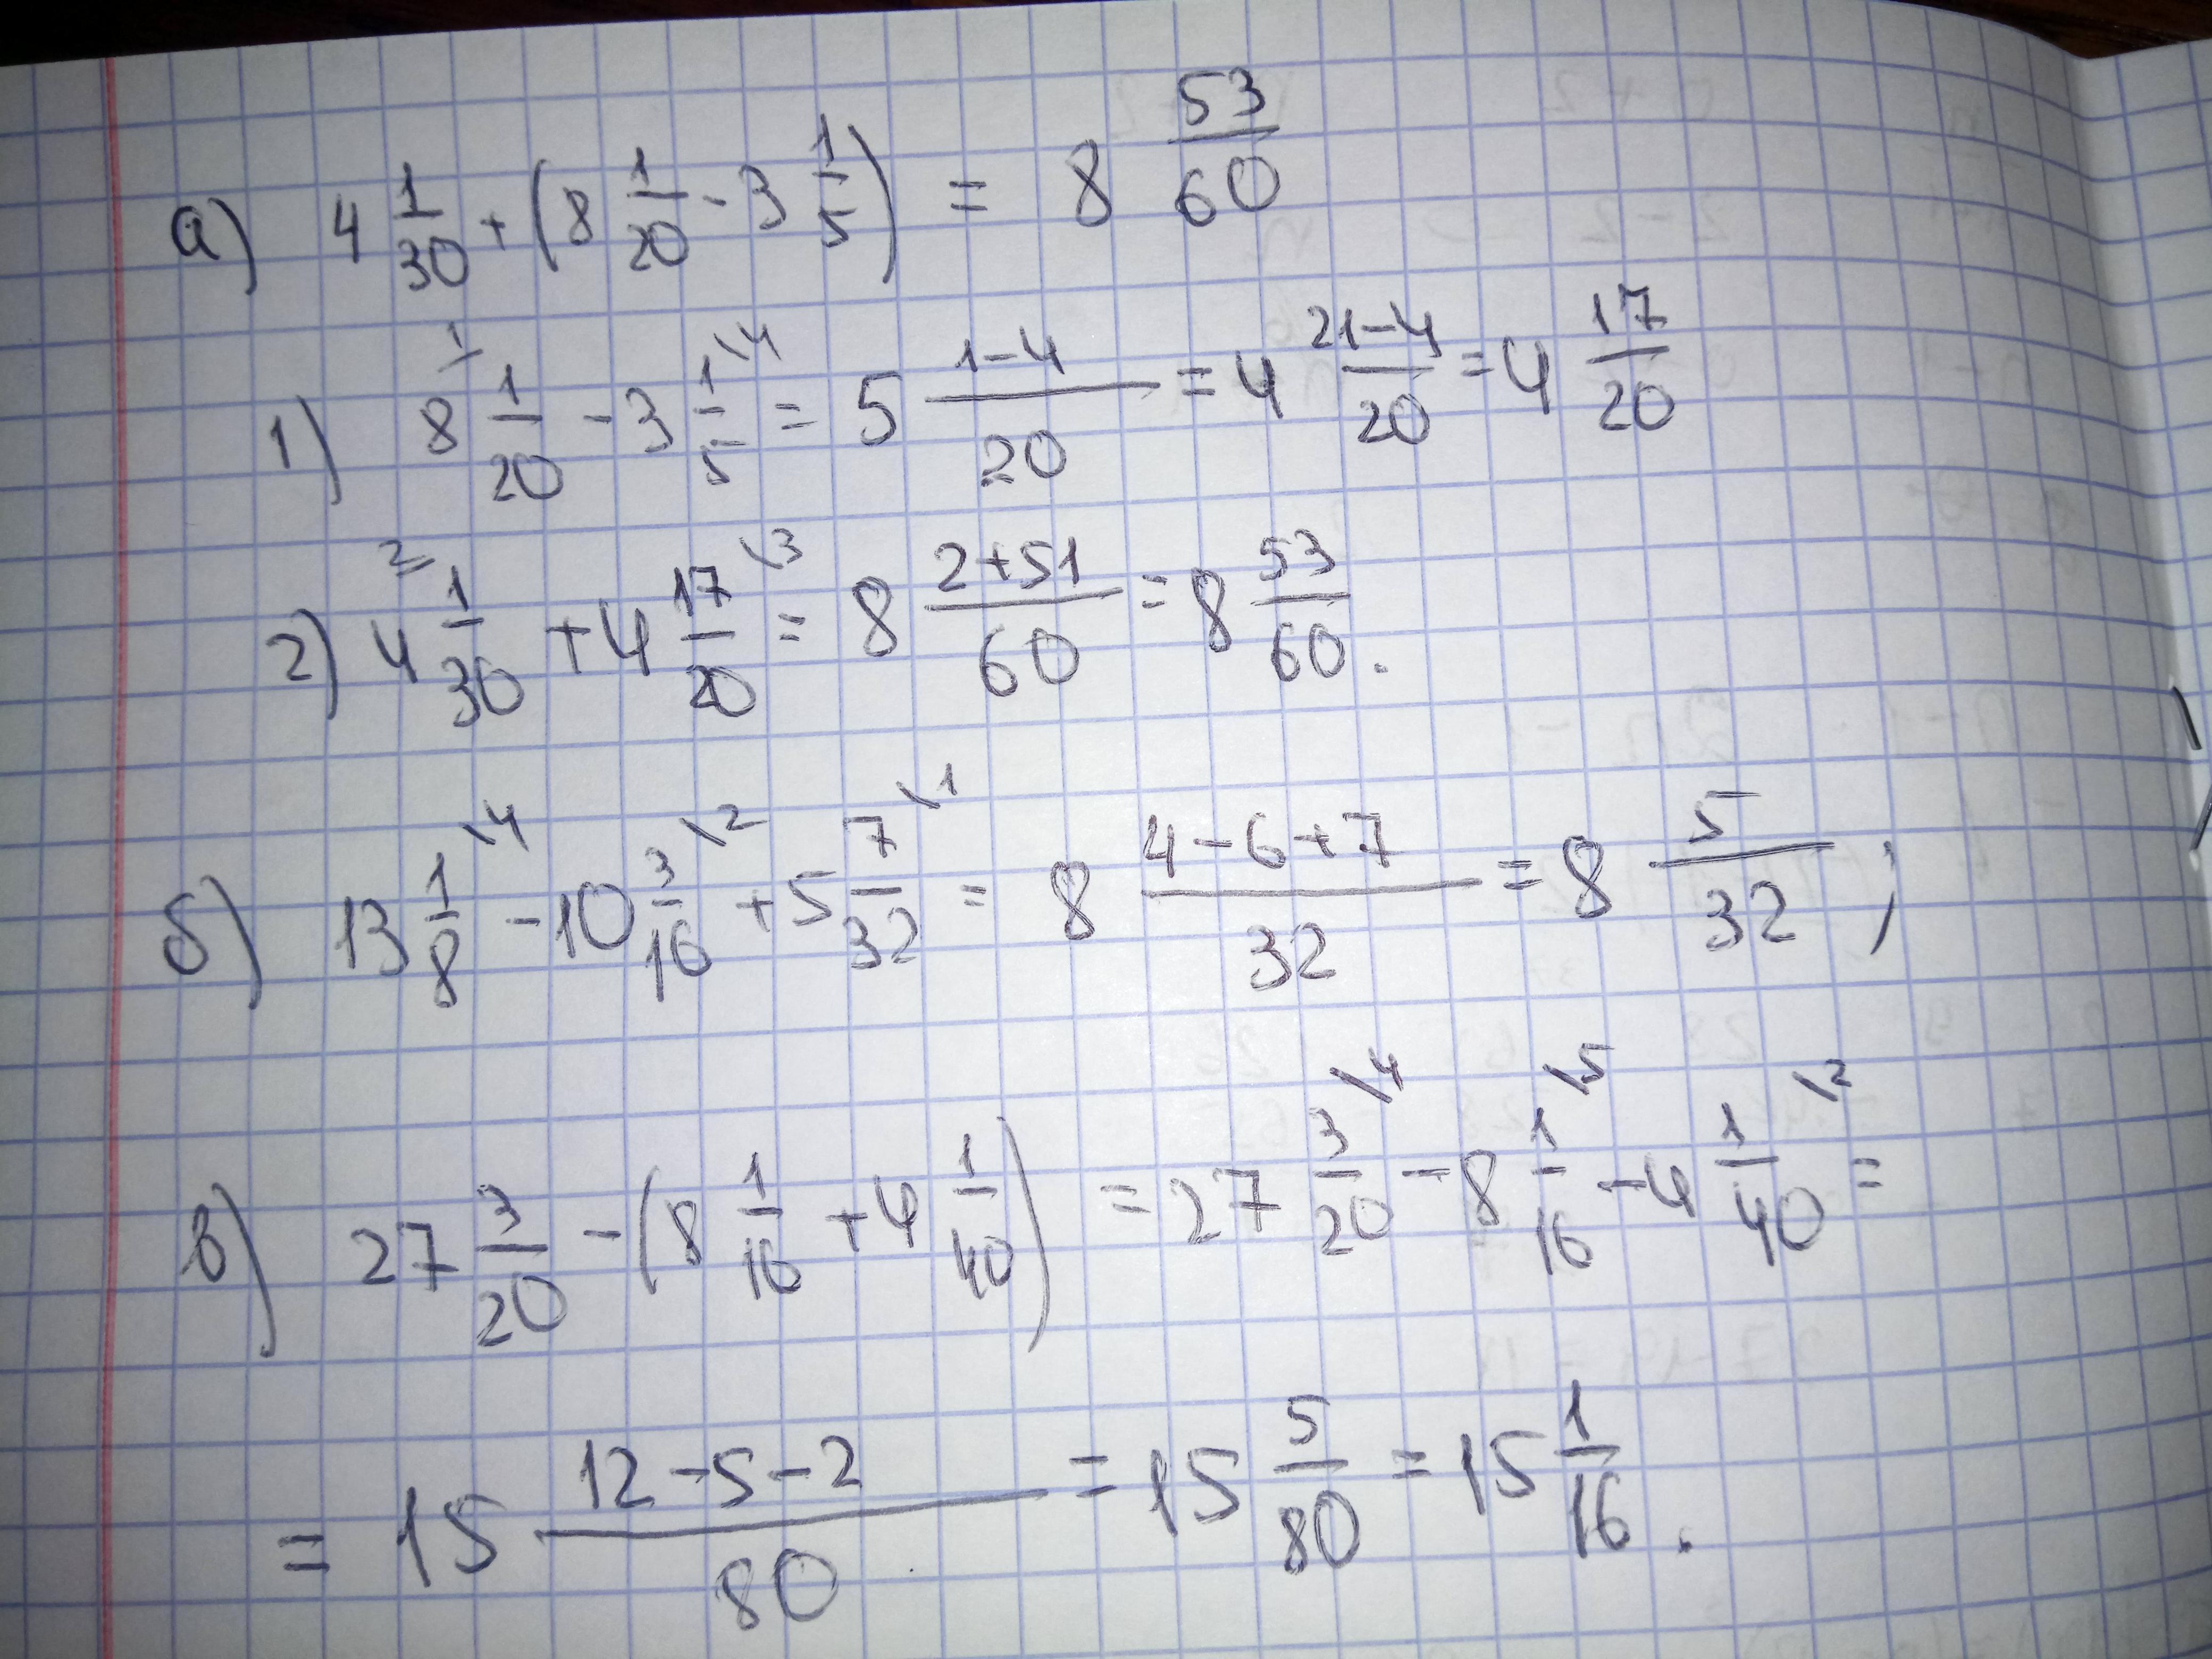 а) 4 1/30 + (8 1/20 - 3 1/5) = 8 53/60
1) 8 1/20 \1 - 3 1/5 \4 = 5 (1-4)/20 = 4 (21-4)/20 = 4 17/20
2) 4 1/30 \2 + 4 17/20 \3 = 8 (2+51)/60 = 8 53/60.
б) 13 1/8 \4 - 10 3/16 \2 + 5 7/32 \1 = 8 (4-6+7)/32 = 8 5/32;
в) 27 3/20 - (8 1/16 + 4 1/40) = 27 3/20 \4 - 8 1/16 \5 - 4 1/40 \2 =
= 15 (12-5-2)/80 = 15 5/80 = 15 1/16.